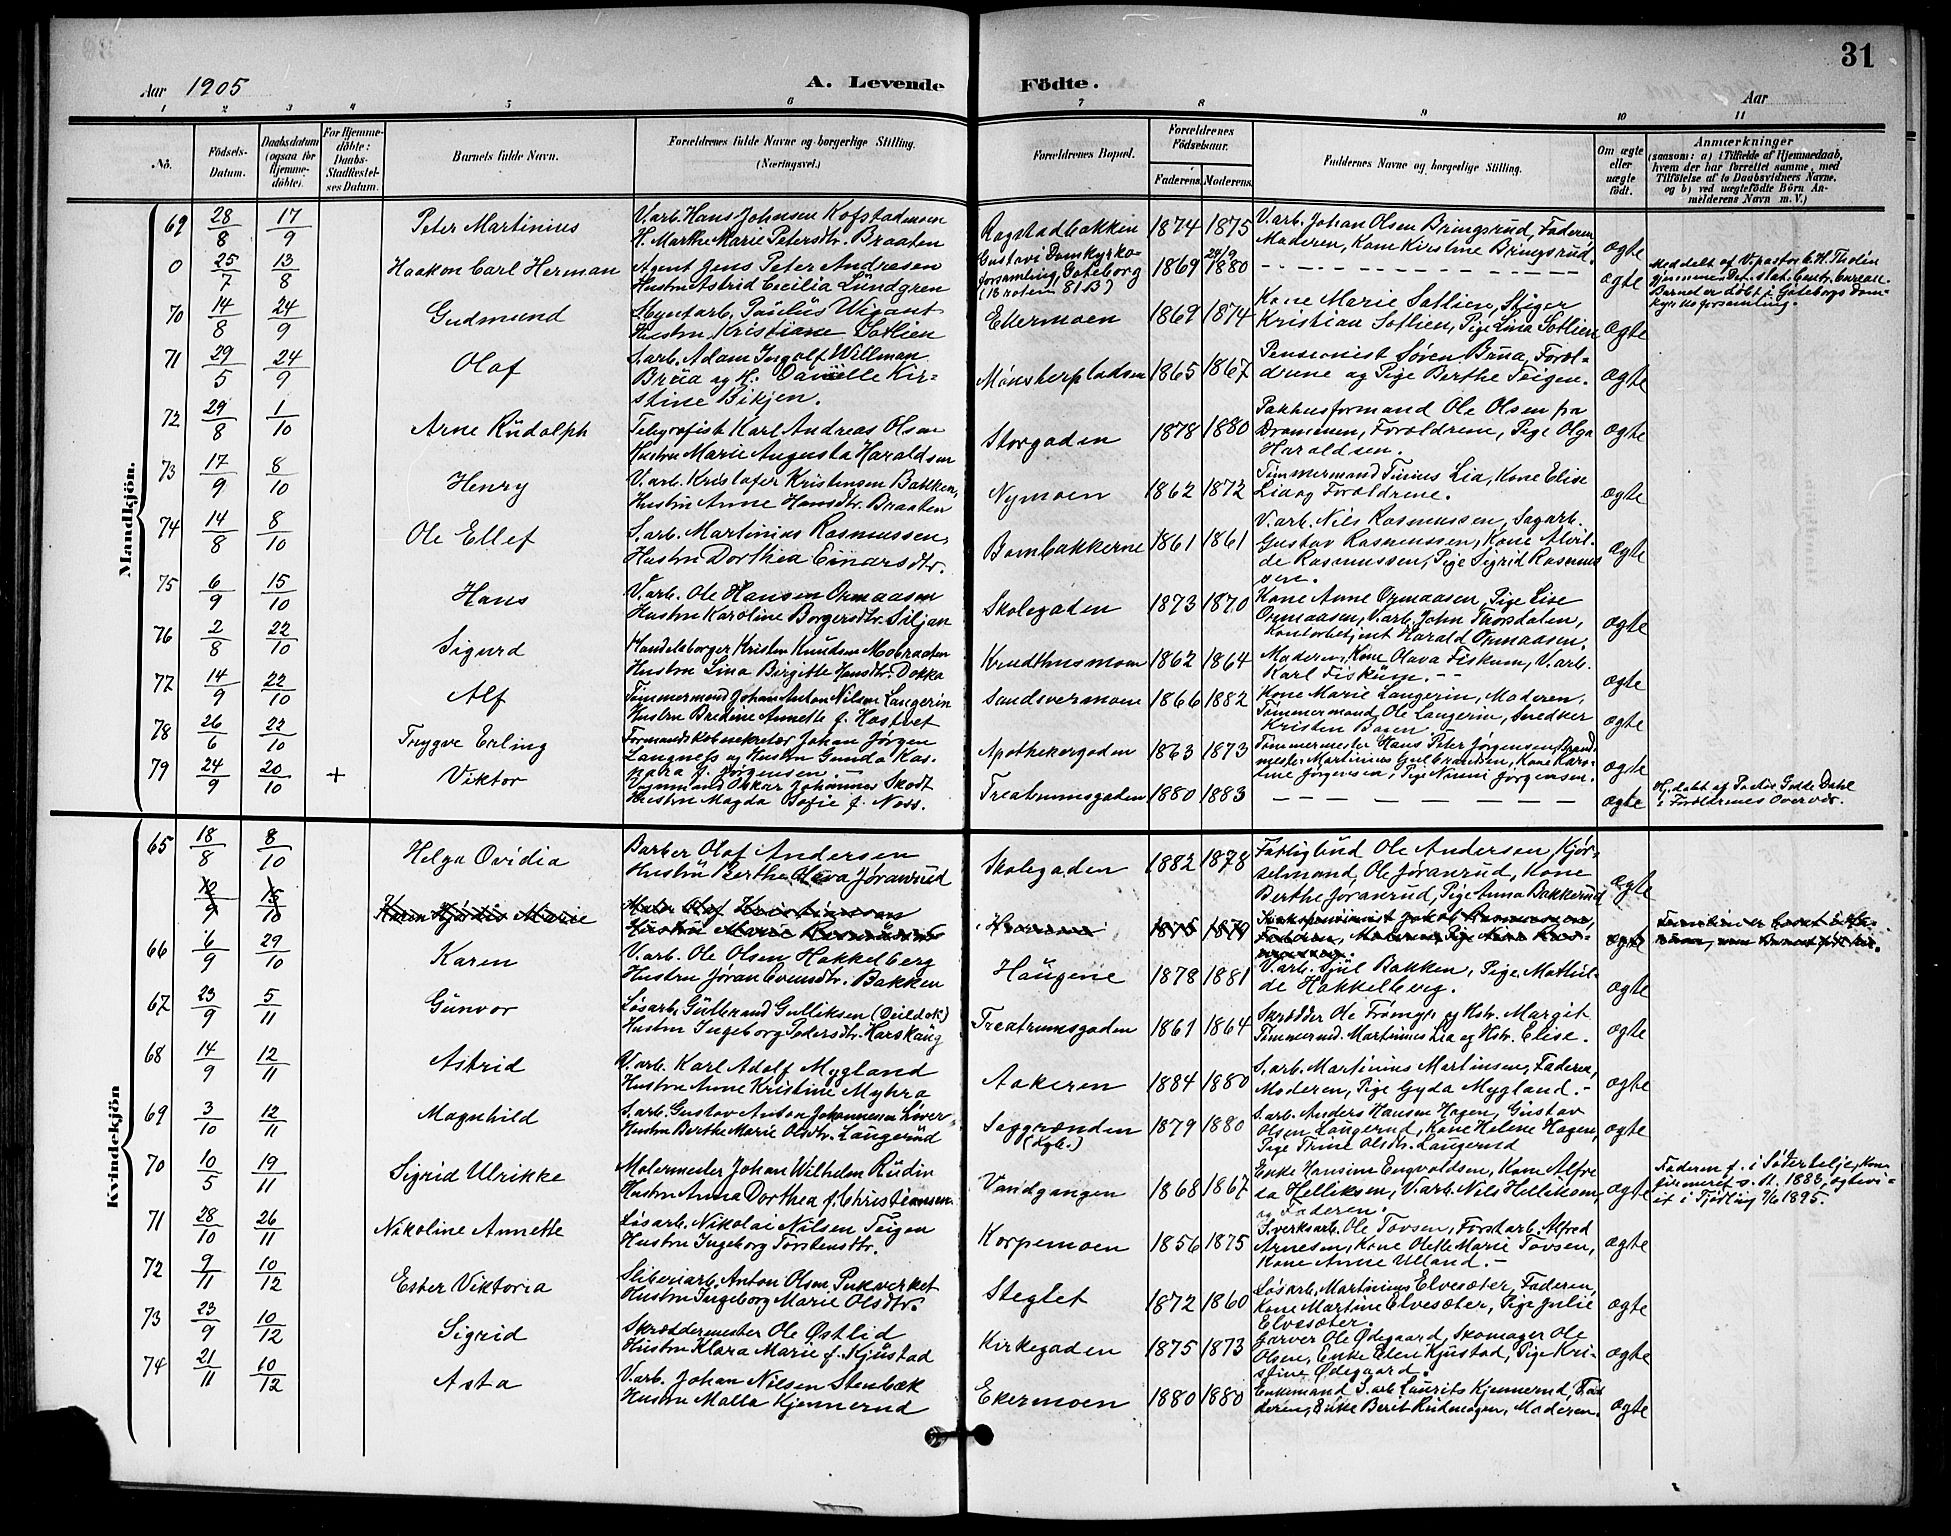 31
Aar 1905
A. Levende Födte.
Aar
1 2 3 4 5 6 7 8 9 10 11
No.
Födsels-Datum.
Daabsdatum (ogsaa for Hjemme-döbte).
For Hjemme-döbte: Daabs-Stadfæstel-ses Datum.
Barnets fulde Navn.
Forældrenes fulde Navne og borgerlige Stilling. (Næringsvei.)
Forældrenes Bopæl.
Forældrenes Födselsaar.
Faderens. Moderens.
Faddernes Navne og borgerlige Stilling.
Om ægte eller uægte födt.
Anmærkninger
(saasom: a) i Tilfælde af Hjemmedaab,
hvem der har forrettet samme, med
Tilföielse af to Daabsvidners Navne,
og b) ved uægtefödte Börn An-
melderens Navn m. V.)
Mandkjön.
69 28/8 17/9 Peter Martinius
V.arb. Hans Johnsen Kofstadmoen
H. Marthe Marie Petersdtr. Braaten
Ragstadbakken 1874 1875
V.arb. Johan Olsen Bringsrud, Faderen
Moderen, Kone Kirstine Bringsrud.
ægte
0 25/7 13/8 Haakon Carl Herman
Agent Jens Peter Andresen
Hustru Astrid Cecilia Lundgren
Gustavi Domkyrko-
forsamling, Göteborg
(16 roten 81 B)
1869 24/9 1880
ægte
Meddelt af V.pastor C. H. Thodén
gjennem Det stat. Centr. bureau.
Barnet er döbt i Göteborgs Dom-
kyrkoforsamling.
70 14/8 24/9 Gudmund
Myntarb. Paulus Wigant
Hustru Kristiane Sotlien
Ekermoen 1869 1874
Kone Marie Sotlien, Stiger
Kristian Sotlien, Pige Lina Sotlien
ægte
71 29/5 24/9 Olaf
S.arb. Adam Ingolf Willman
Brua og H. Danielle Kir-
stine Bikjen.
Mønsterpladsen 1865 1867
Pensionist Søren Brua, Foræl-
drene og Pige Berthe Teigen.
ægte
72 29/8 1/10 Arne Rudolph
Telegrafist Karl Andreas Olsen
Hustru Marie Augusta Haraldsen
Storgaden 1878 1880
Pakhusformand Ole Olsen fra
Drammen, Forældrene, Pige Olga
Haraldsen.
ægte
73 17/9 8/10 Henry
V.arb. Kristofer Kristensen Bakken,
Hustru Anne Hansdtr. Braaten
Nymoen 1862 1872
Tømmermand Tinius Lia, Kone Elise
Lia og Forældrene.
ægte
74 14/8 8/10 Ole Ellef
S.arb. Martinius Rasmussen,
Hustru Dorthea Einarsdtr.
Bombakkerne 1861 1861
V.arb. Nils Rasmussen, Sagarb.
Gustav Rasmussen, Kone Alvil-
de Rasmussen, Pige Sigrid Rasmus
sen.
ægte
75 6/9 15/10 Hans
V.arb. Ole Hansen Ormaasen
Hustru Karoline Borgersdtr. Siljan
Skolegaden 1873 1870
Kone Anne Ormaasen, Pige Lise
Ormaasen, V.arb. John Thorsdalen,
Kontorbetjent Harald Ormaasen.
ægte
76 2/8 22/10 Sigurd
Handelsborger Kristen Knudsen Mobraaten
Hustru Lina Birgitte Hansdtr. Dokka
Krudthusmoen 1862 1864
Moderen, Kone Olava Fiskum, V.arb.
Karl Fiskum.
ægte
77 14/9 22/10 Alf
Tømmermand Johan Anton Nilsen Langerin
Hustru Bredine Annette f. Hostvet
Sandsvermoen 1866 1882
Kone Marie Langerin, Moderen,
Tømmermand Ole Langerin, Snedker
Kristen
ægte
78 26/6 22/10 Trygve Erling
Formandskabssekretær Johan Jørgen
Langness og Hustru Gunda Kas-
para f. Jørgensen.
Apothekergaden 1863 1873
Tømmermester Hans Peter Jørgensen, Brand-
mester Martinius Gulbrandsen, Kone Karo-
line Jørgensen, Pige Ninni Jørgensen.
ægte
79 24/9 20/10 + Viktor
Vognmand Oskar Johannes Skodt
Hustru Magda Sofie f. Noss.
Treatrumsgaden 1880 1883
ægte
Hj. døbt af Pastor Gedde Dahl
i Forældrenes Overvær.
Kvindekjön
65 18/8 8/10 Helga Ovidia
Barber Olaf Andersen
Hustru Berthe Olava Jøransrud
Skolegaden 1882 1878
Fattigbud Ole Andersen, Kjør-
selmand, Ole Jøransrud, Kone
Berthe Jøransrud, Pige Anna Bakkerud
ægte
12/9 15/10 Karen Hjørdis Marie
Maler Olaf Kristiansen
Hustru Marie
1875 1879
ægte
66 6/9 29/10 Karen
V.arb. Ole Olsen Hakkelberg
Hustru Jøran Evensdtr. Bakken
Haugene 1878 1881
V.arb. Sjul Bakken, Pige Mathil-
de Hakkelberg.
ægte
67 23/9 5/11 Gunvor
Løsarb. Gulbrand Gulliksen
Hustru Ingeborg Pedersdtr. Karskaug
Treatrumsgaden 1861 1864
Skrædder Ole og Hstr. Margit
Tømmermd. Martinius Lia og Hstr. Elise.
ægte
68 14/9 12/11 Astrid
V.arb. Karl Adolf Mygland
Hustru Anne Kristine Myhra
Aakeren 1884 1880
S.arb. Martinius Martinsen, Faderen,
Moderen, Pige Gyda Mygland.
ægte
69 3/10 12/11 Magnhild
S.arb. Gustav Anton Johannesen Løver
Hustru Berthe Marie Olsdtr. Laugerud
Saggrænden
(Kgb.)
1879 1880
S.arb. Anders Hansen Hagen, Gustav
Olsen Laugerud, Kone Helene Hagen,
Pige Trine Olsdtr. Laugerud
ægte
70 10/5 19/11 Sigrid Ulrikke
Malermester Johan Wilhelm Rudin
Hustru Anna Dorthea f. Christiansen
Vandgangen 1868 1867
Enke Hansine Engvoldsen, Kone Alfre
da Helliksen, V.arb. Nils Helliksen,
og Faderen.
ægte
Faderen f. i Södertelje, kon-
firmeret s. st. 1883, ægtevi-
et i Tjölling 7/6 1895.
71 28/10 26/11 Nikoline Annette
Løsarb. Nikolai Nilsen Teigen
Hustru Ingeborg Torstensdtr.
Korpemoen 1856 1875
S.verksarb. Ole Tovsen, Forstarb. Alfred
Arnesen, Kone Olette Marie Tovsen,
Kone Anne Ulland.
ægte
72 9/11 10/12 Ester Viktoria
Sliberiarb. Anton Olsen Pukverket
Hustru Ingeborg Marie Olsdtr.
Steglet 1872 1860
Løsarb. Martinius Elvesæter, Faderen,
Kone Martine Elvesæter, Pige Julie
Elvesæter.
ægte
73 23/9 10/12 Sigrid
Skræddermester Ole Østlid
Hustru Klara Marie f. Kjustad
Kirkegaden 1875 1873
Garver Ole Ødegaard, Skomager Ole
Olsen, Enke Elen Kjustad, Pige Kri-
stine Ødegaard.
ægte
74 21/11 10/12 Asta
V.arb. Johan Nilsen Stenbæk
Hustru Malla Kjennerud
Ekermoen 1880 1880
Enkemand S.arb. Laurits Kjennerud, Fa-
deren, Enke Berit Rudmogen, Moderen.
ægte